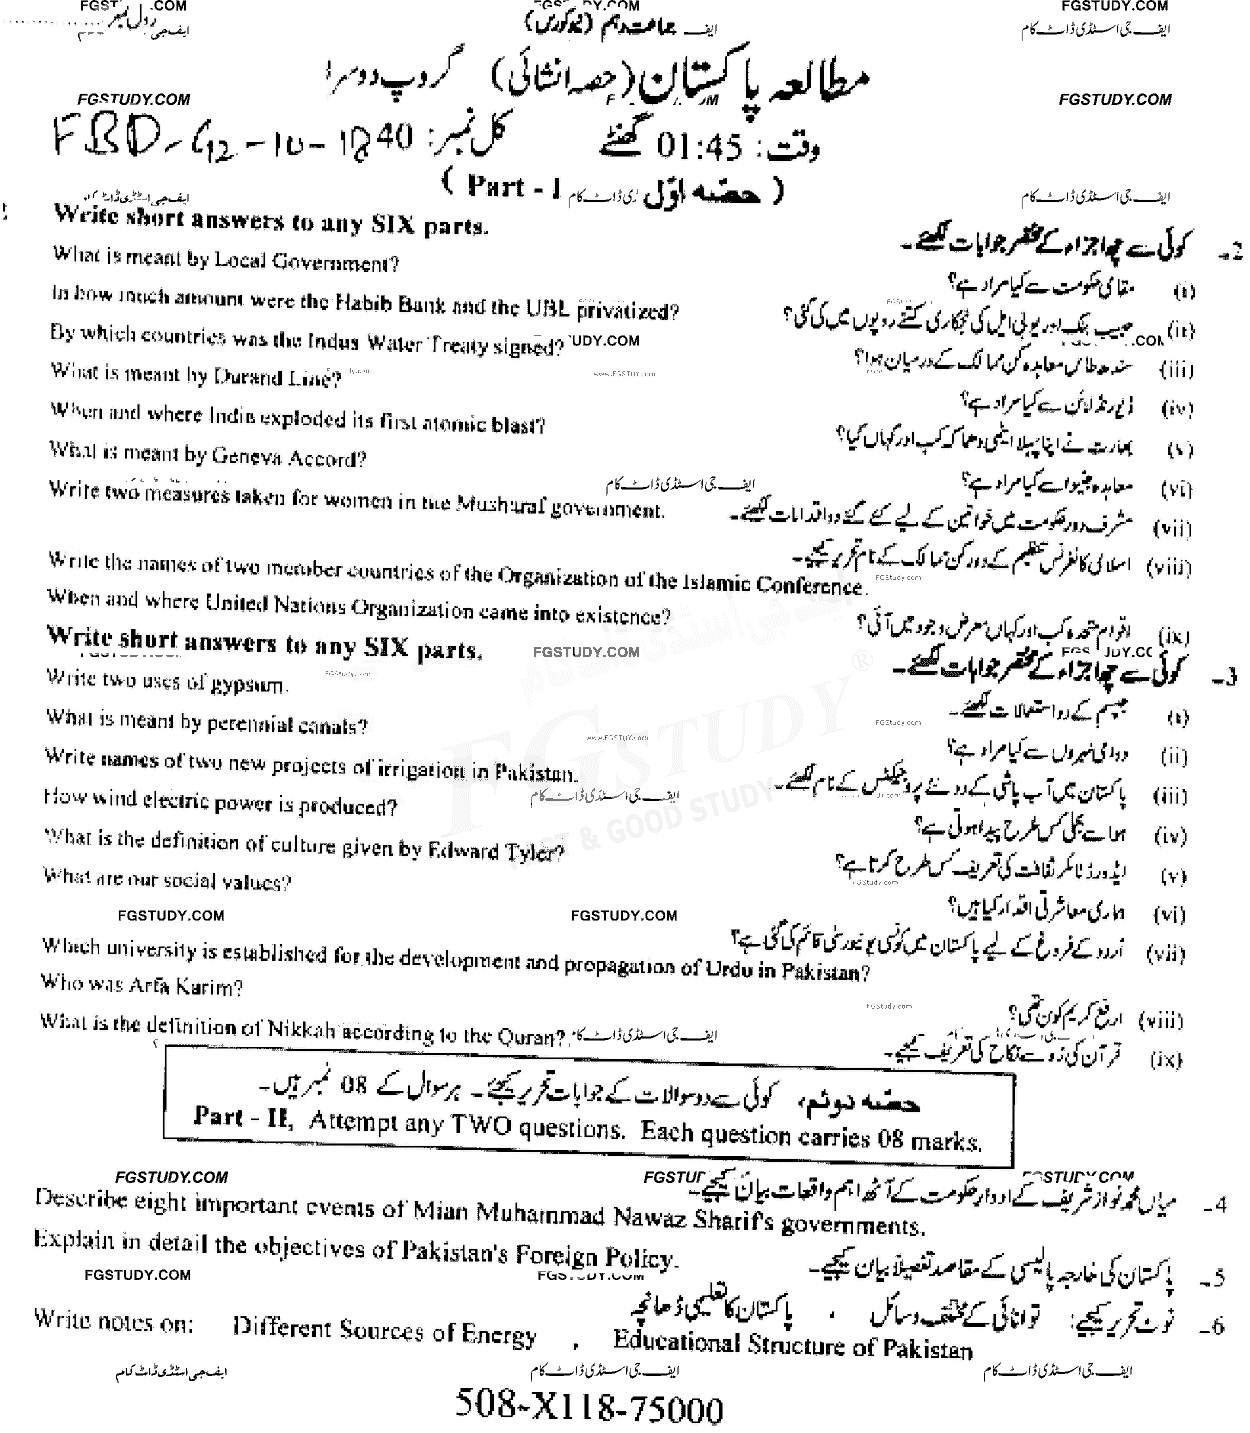 FGSTUDY.COM
جماعت دہم (نیو کورس)
ایف جی اسٹڈی ڈاٹ کام
رول نمبر
مطالعہ پاکستان (حصہ انشائی) گروپ دوسرا
FGSTUDY.COM FGSTUDY.COM
وقت: 01:45 گھنٹے کل نمبر: 40
FBD-G12-10-18
( Part - I حصّہ اوّل )
ایف جی اسٹڈی ڈاٹ کام
Write short answers to any SIX parts.
2- کوئی سے چھ اجزاء کے مختصر جوابات لکھئے۔
What is meant by Local Government?
(i) مقامی حکومت سے کیا مراد ہے؟
In how much amount were the Habib Bank and the UBL privatized?
(ii) حبیب بنک اور یو بی ایل کی نجکاری کتنے روپوں میں کی گئی؟
By which countries was the Indus Water Treaty signed?
(iii) سندھ طاس معاہدہ کن ممالک کے درمیان ہوا؟
What is meant by Durand Line?
(iv) ڈیورنڈ لائن سے کیا مراد ہے؟
When and where India exploded its first atomic blast?
(v) بھارت نے اپنا پہلا ایٹمی دھماکہ کب اور کہاں کیا؟
What is meant by Geneva Accord?
(vi) معاہدہ جنیوا سے کیا مراد ہے؟
ایف جی اسٹڈی ڈاٹ کام
Write two measures taken for women in the Musharaf government.
(vii) مشرف دور حکومت میں خواتین کے لیے کئے گئے دو اقدامات لکھئے۔
Write the names of two member countries of the Organization of the Islamic Conference.
(viii) اسلامی کانفرنس تنظیم کے دو رکن ممالک کے نام تحریر کیجیے۔
When and where United Nations Organization came into existence?
(ix) اقوام متحدہ کب اور کہاں معرض وجود میں آئی؟
Write short answers to any SIX parts.
FGSTUDY.COM
3- کوئی سے چھ اجزاء کے مختصر جوابات لکھئے۔
Write two uses of gypsum.
(i) جپسم کے دو استعمالات لکھئے۔
What is meant by perennial canals?
(ii) دوامی نہروں سے کیا مراد ہے؟
www.FGSTUDY.com
Write names of two new projects of irrigation in Pakistan.
(iii) پاکستان میں آب پاشی کے دو نئے پروجیکٹس کے نام لکھئے۔
How wind electric power is produced?
(iv) ہوا سے بجلی کس طرح پیدا ہوتی ہے؟
ایف جی اسٹڈی ڈاٹ کام
What is the definition of culture given by Edward Tyler?
(v) ایڈورڈ ٹائلر ثقافت کی تعریف کس طرح کرتا ہے؟
What are our social values?
(vi) ہماری معاشرتی اقدار کیا ہیں؟
FGSTUDY.COM FGSTUDY.COM
FGSTUDY
& GOOD STUDY
Which university is established for the development and propagation of Urdu in Pakistan?
(vii) اُردو کے فروغ کے لیے پاکستان میں کونسی یونیورسٹی قائم کی گئی ہے؟
Who was Arfa Karim?
(viii) ارفع کریم کون تھی؟
What is the definition of Nikkah according to the Quran?
(ix) قرآن کی رُو سے نکاح کی تعریف کیجیے۔
ایف جی اسٹڈی ڈاٹ کام
حصّہ دوئم، کوئی سے دو سوالات کے جوابات تحریر کیجئے۔ ہر سوال کے 08 نمبر ہیں۔
Part - II, Attempt any TWO questions. Each question carries 08 marks.
FGSTUDY.COM
4- میاں محمد نواز شریف کے ادوارِ حکومت کے آٹھ اہم واقعات بیان کیجیے۔
Describe eight important events of Mian Muhammad Nawaz Sharif's governments.
5- پاکستان کی خارجہ پالیسی کے مقاصد تفصیلاً بیان کیجیے۔
Explain in detail the objectives of Pakistan's Foreign Policy.
FGSTUDY.COM
6- نوٹ تحریر کیجیے: توانائی کے مختلف وسائل ، پاکستان کا تعلیمی ڈھانچہ
Write notes on: Different Sources of Energy , Educational Structure of Pakistan
ایف جی اسٹڈی ڈاٹ کام ایف جی اسٹڈی ڈاٹ کام ایف جی اسٹڈی ڈاٹ کام
508-X118-75000